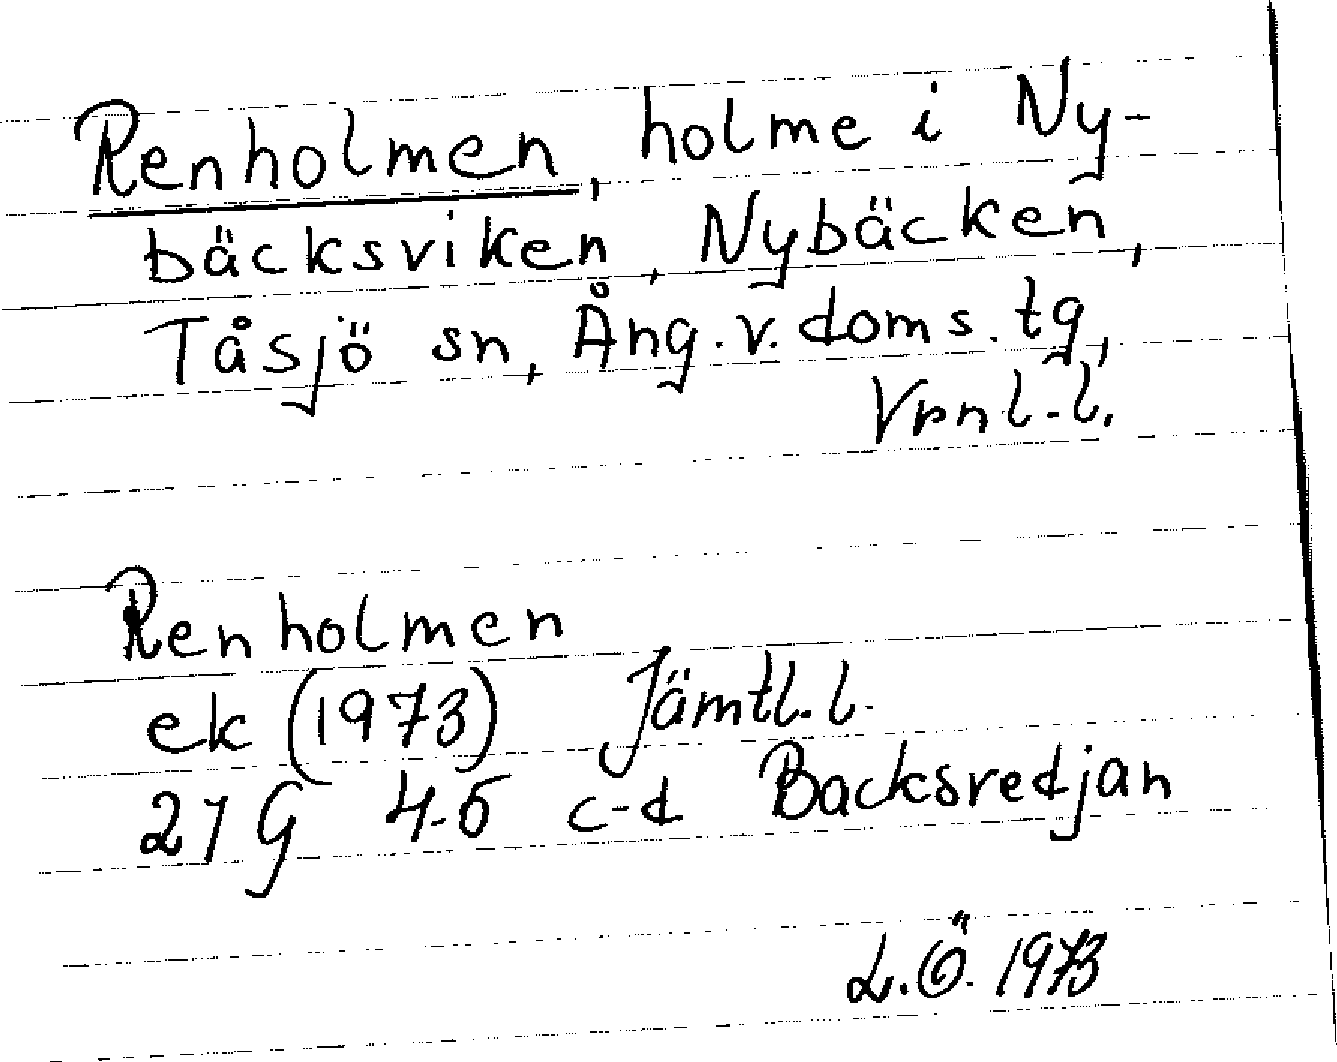 Renholmen, holme i Ny-
bäcksviken, Nybäcken,
Tåsjö sn, Ång. v. doms. tg,
Vrnl.l.
Renholmen
ek (1973) Jämtl.l.
21 G 4-5 c-d Backsredjan
L.Ö. 1973